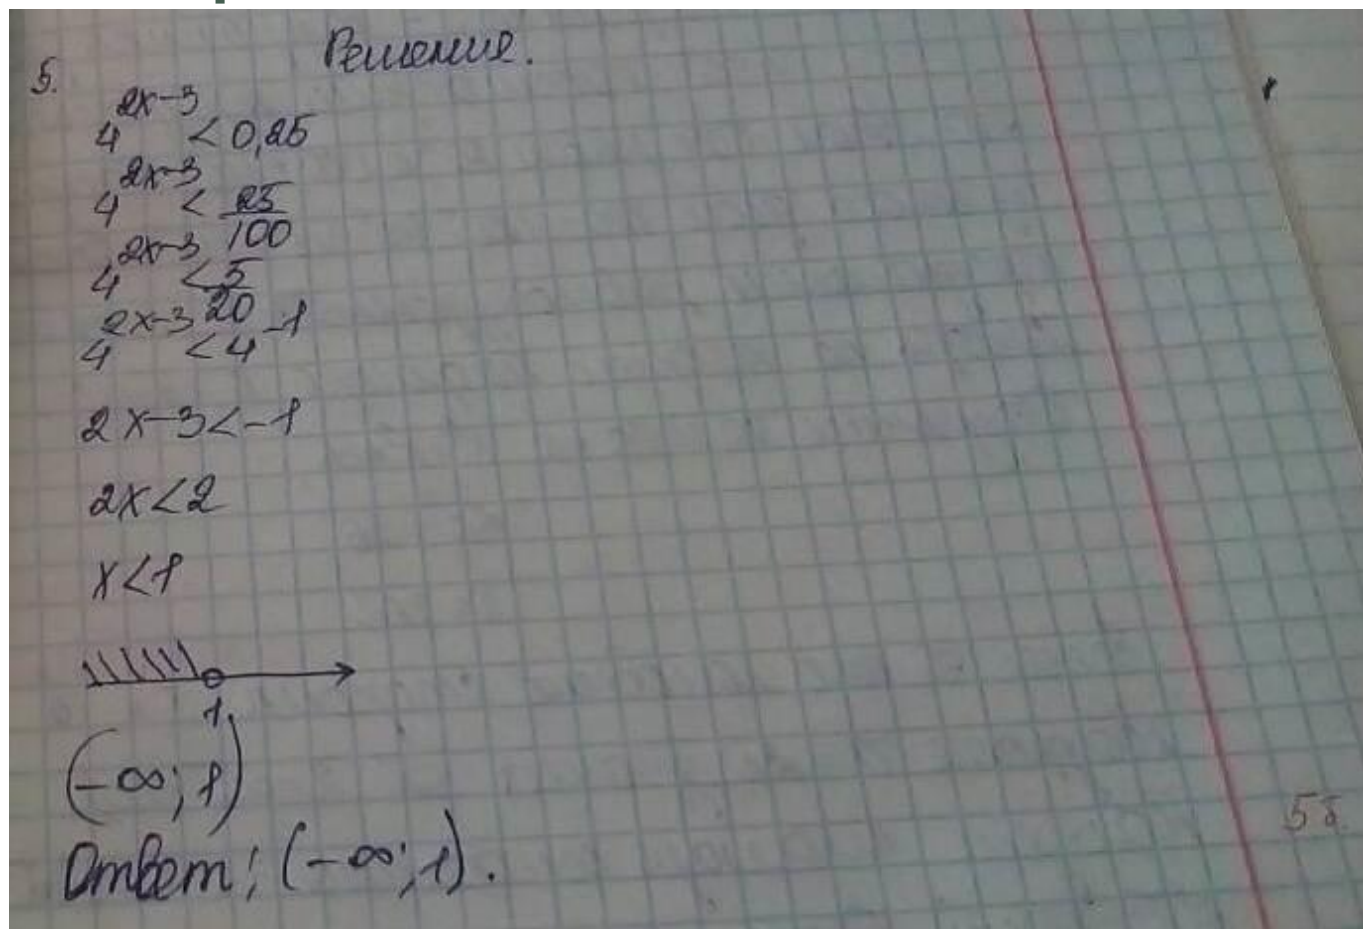 Решение.
5.
4^{2x-3} < 0,25
4^{2x-3} < \frac{25}{100}
4^{2x-3} < \frac{5}{20}
4^{2x-3} < 4^{-1}
2x-3<-1
2x<2
x<1
1
(-∞; 1)
Ответ: (-∞; 1).
5б